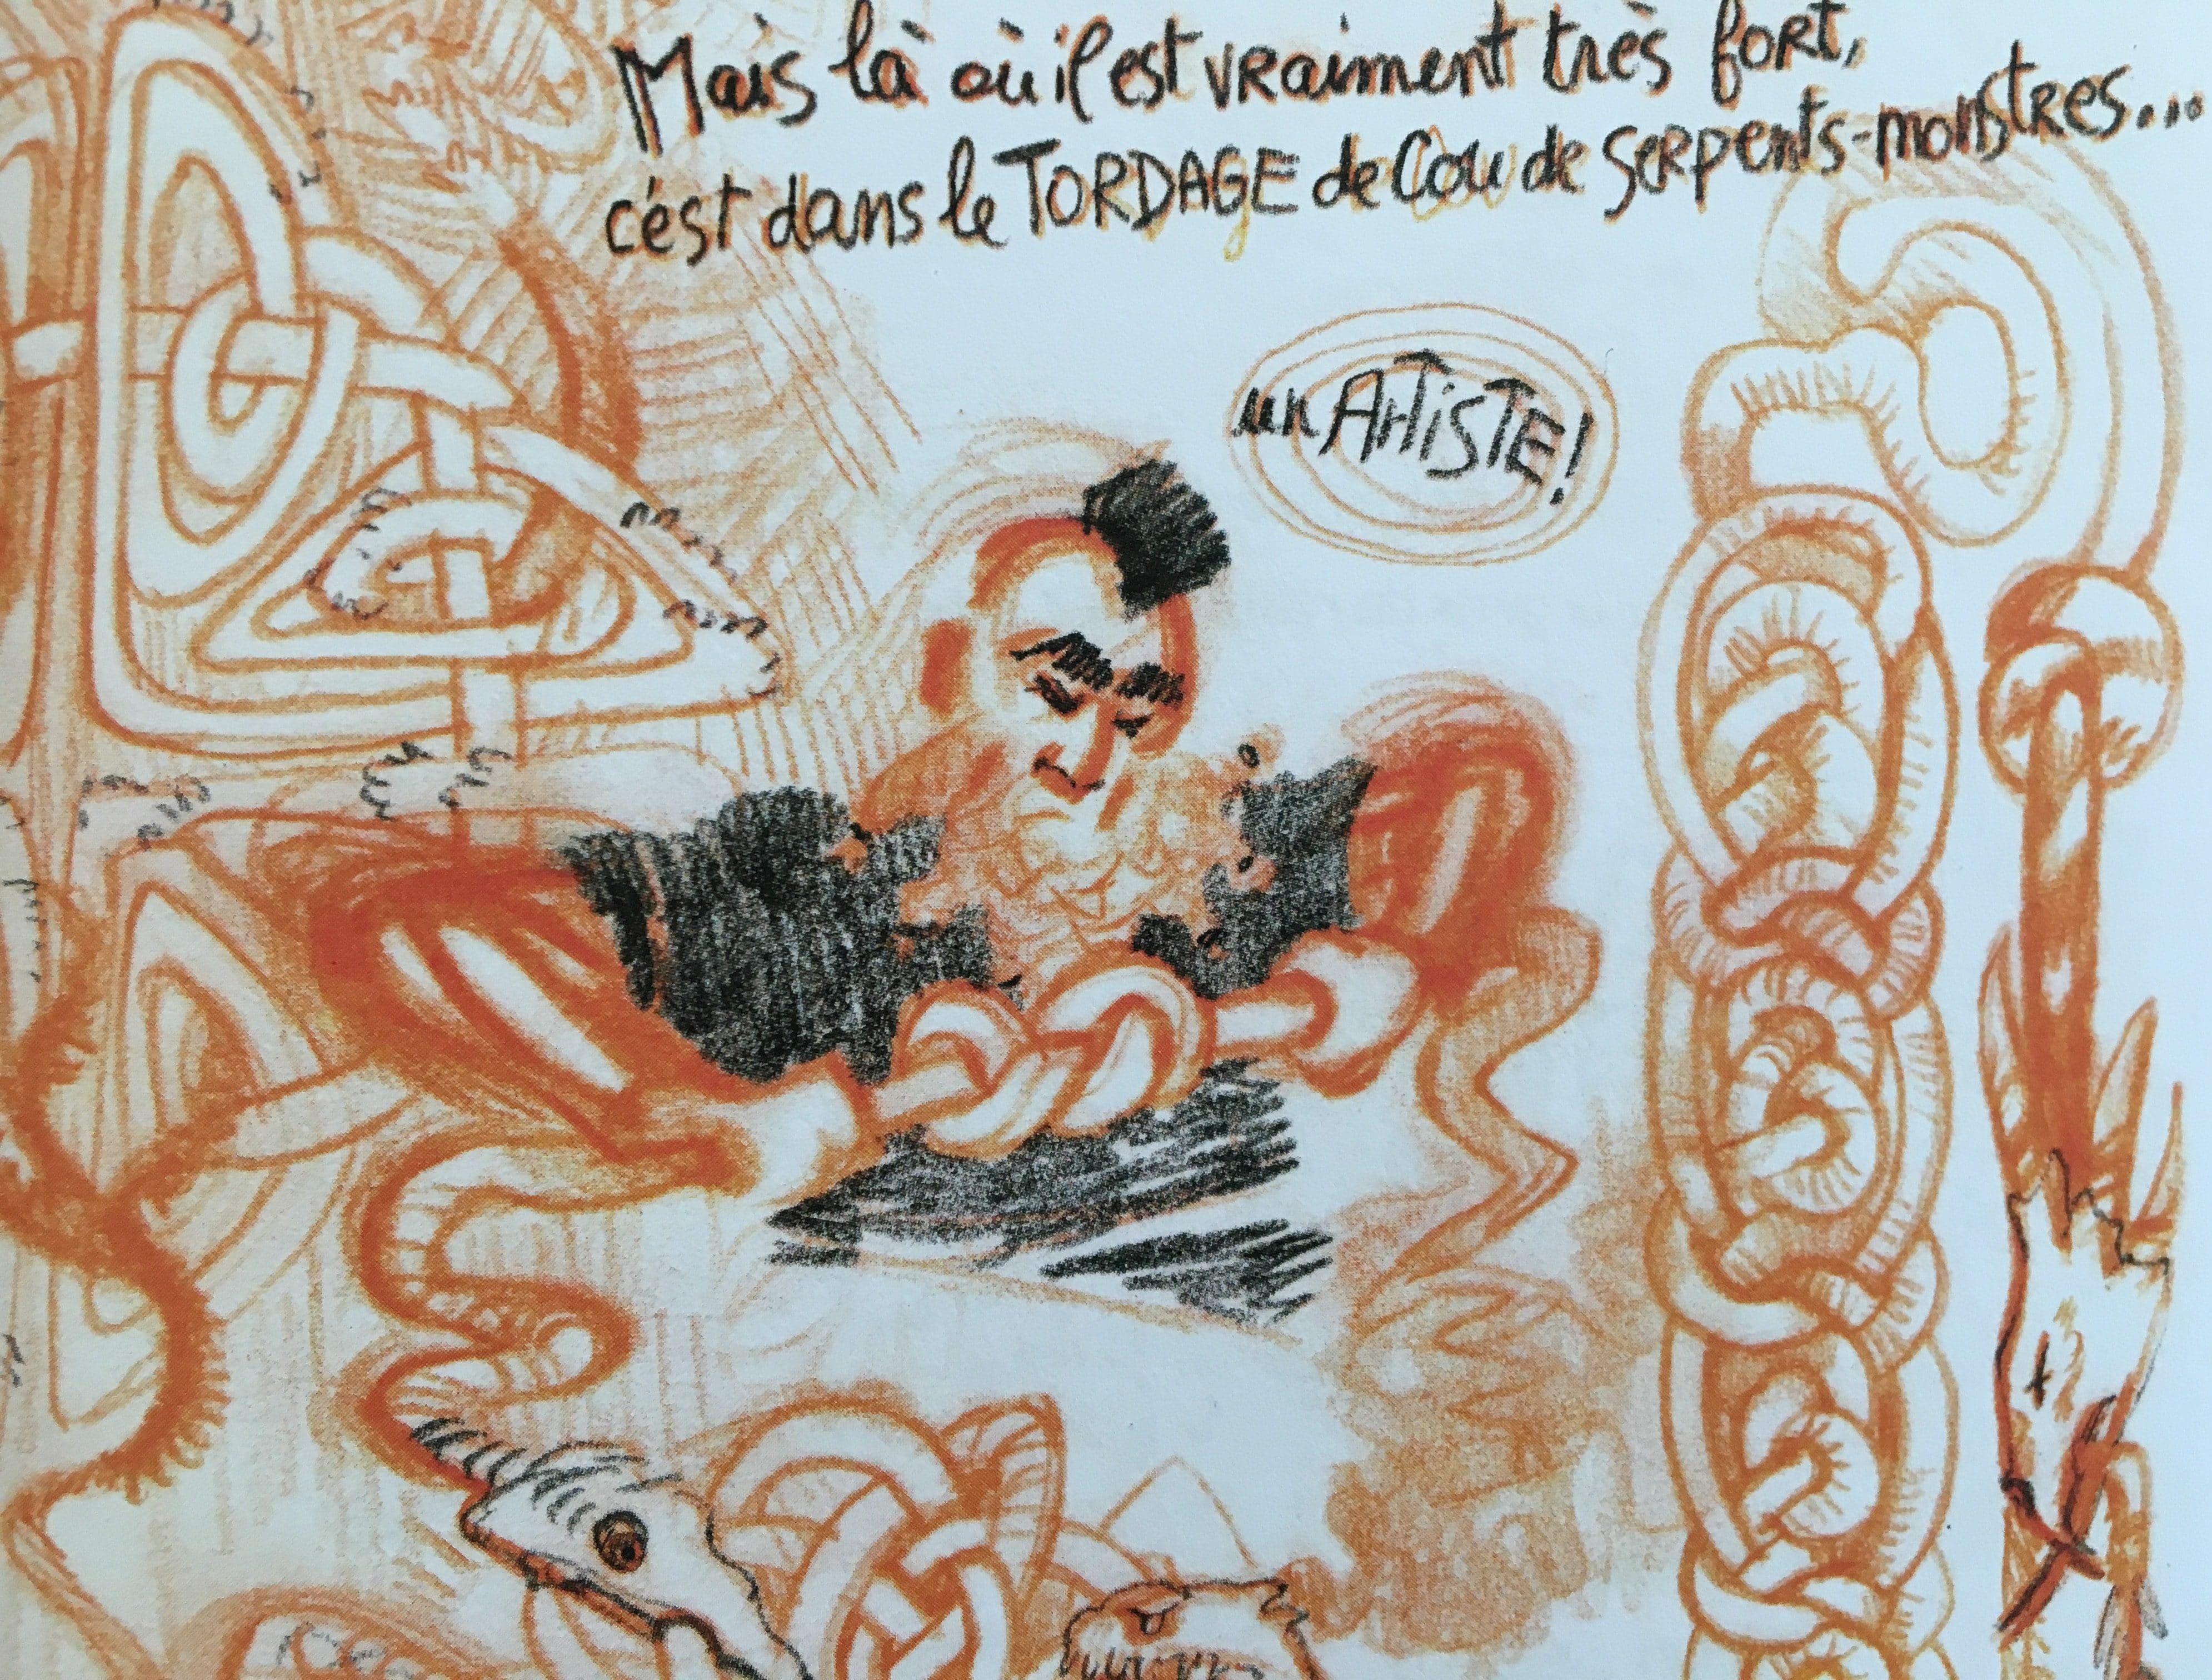 Mais là où il est vraiment très fort,
c'est dans le TORDAGE de Cou de serpents-monstres...
un ARTiSTE!